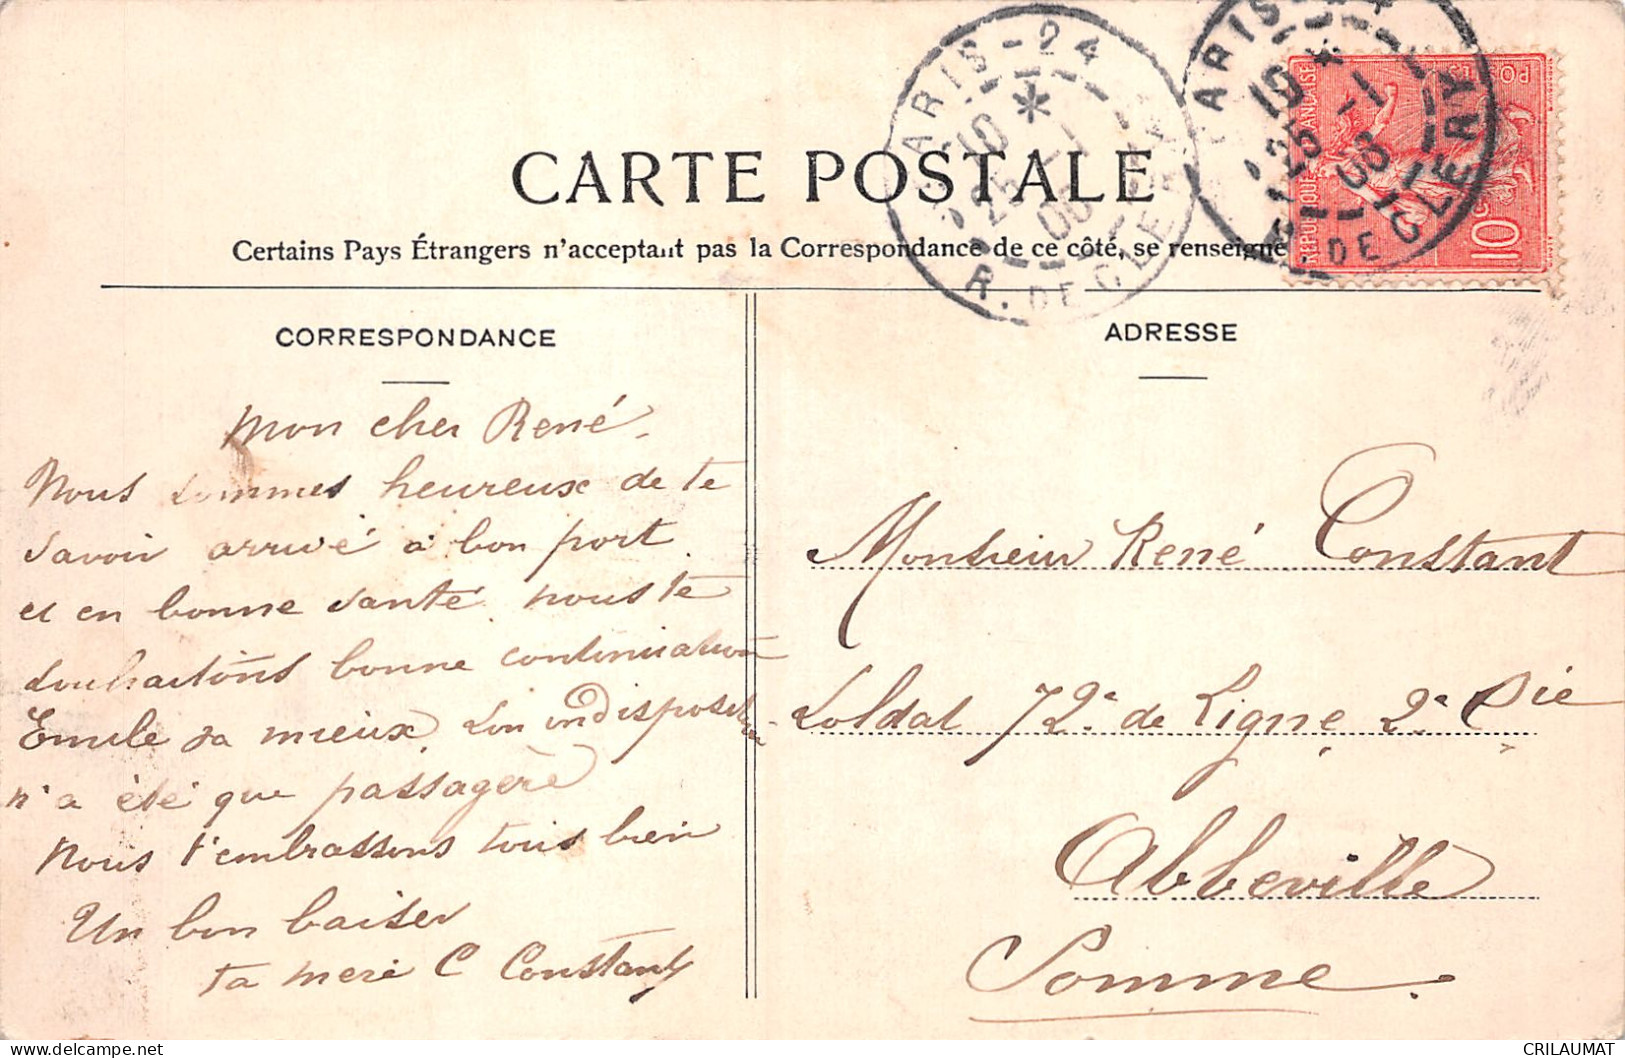 CARTE POSTALE
Certains Pays Étrangers n'acceptant pas la Correspondance de ce côté, se renseigne
PARIS-24
10 *
25 -1
06
R. DE CLERY
PARIS-24
10 *
25 -1
06
R. DE CLERY
REPUBLIQUE FRANÇAISE
POSTES
10c
CORRESPONDANCE
Mon cher René.
Nous sommes heureux de te
savoir arrivé à bon port
et en bonne santé nous te
souhaitons bonne continuation
Emile va mieux son indisposition
n'a été que passagère
Nous t'embrassons tous bien
Un bon baiser
ta mère C Constant
ADRESSE
Monsieur René Constant
Soldat 72e de Ligne 2e Cie
Abbeville
Somme.
CRILAUMAT